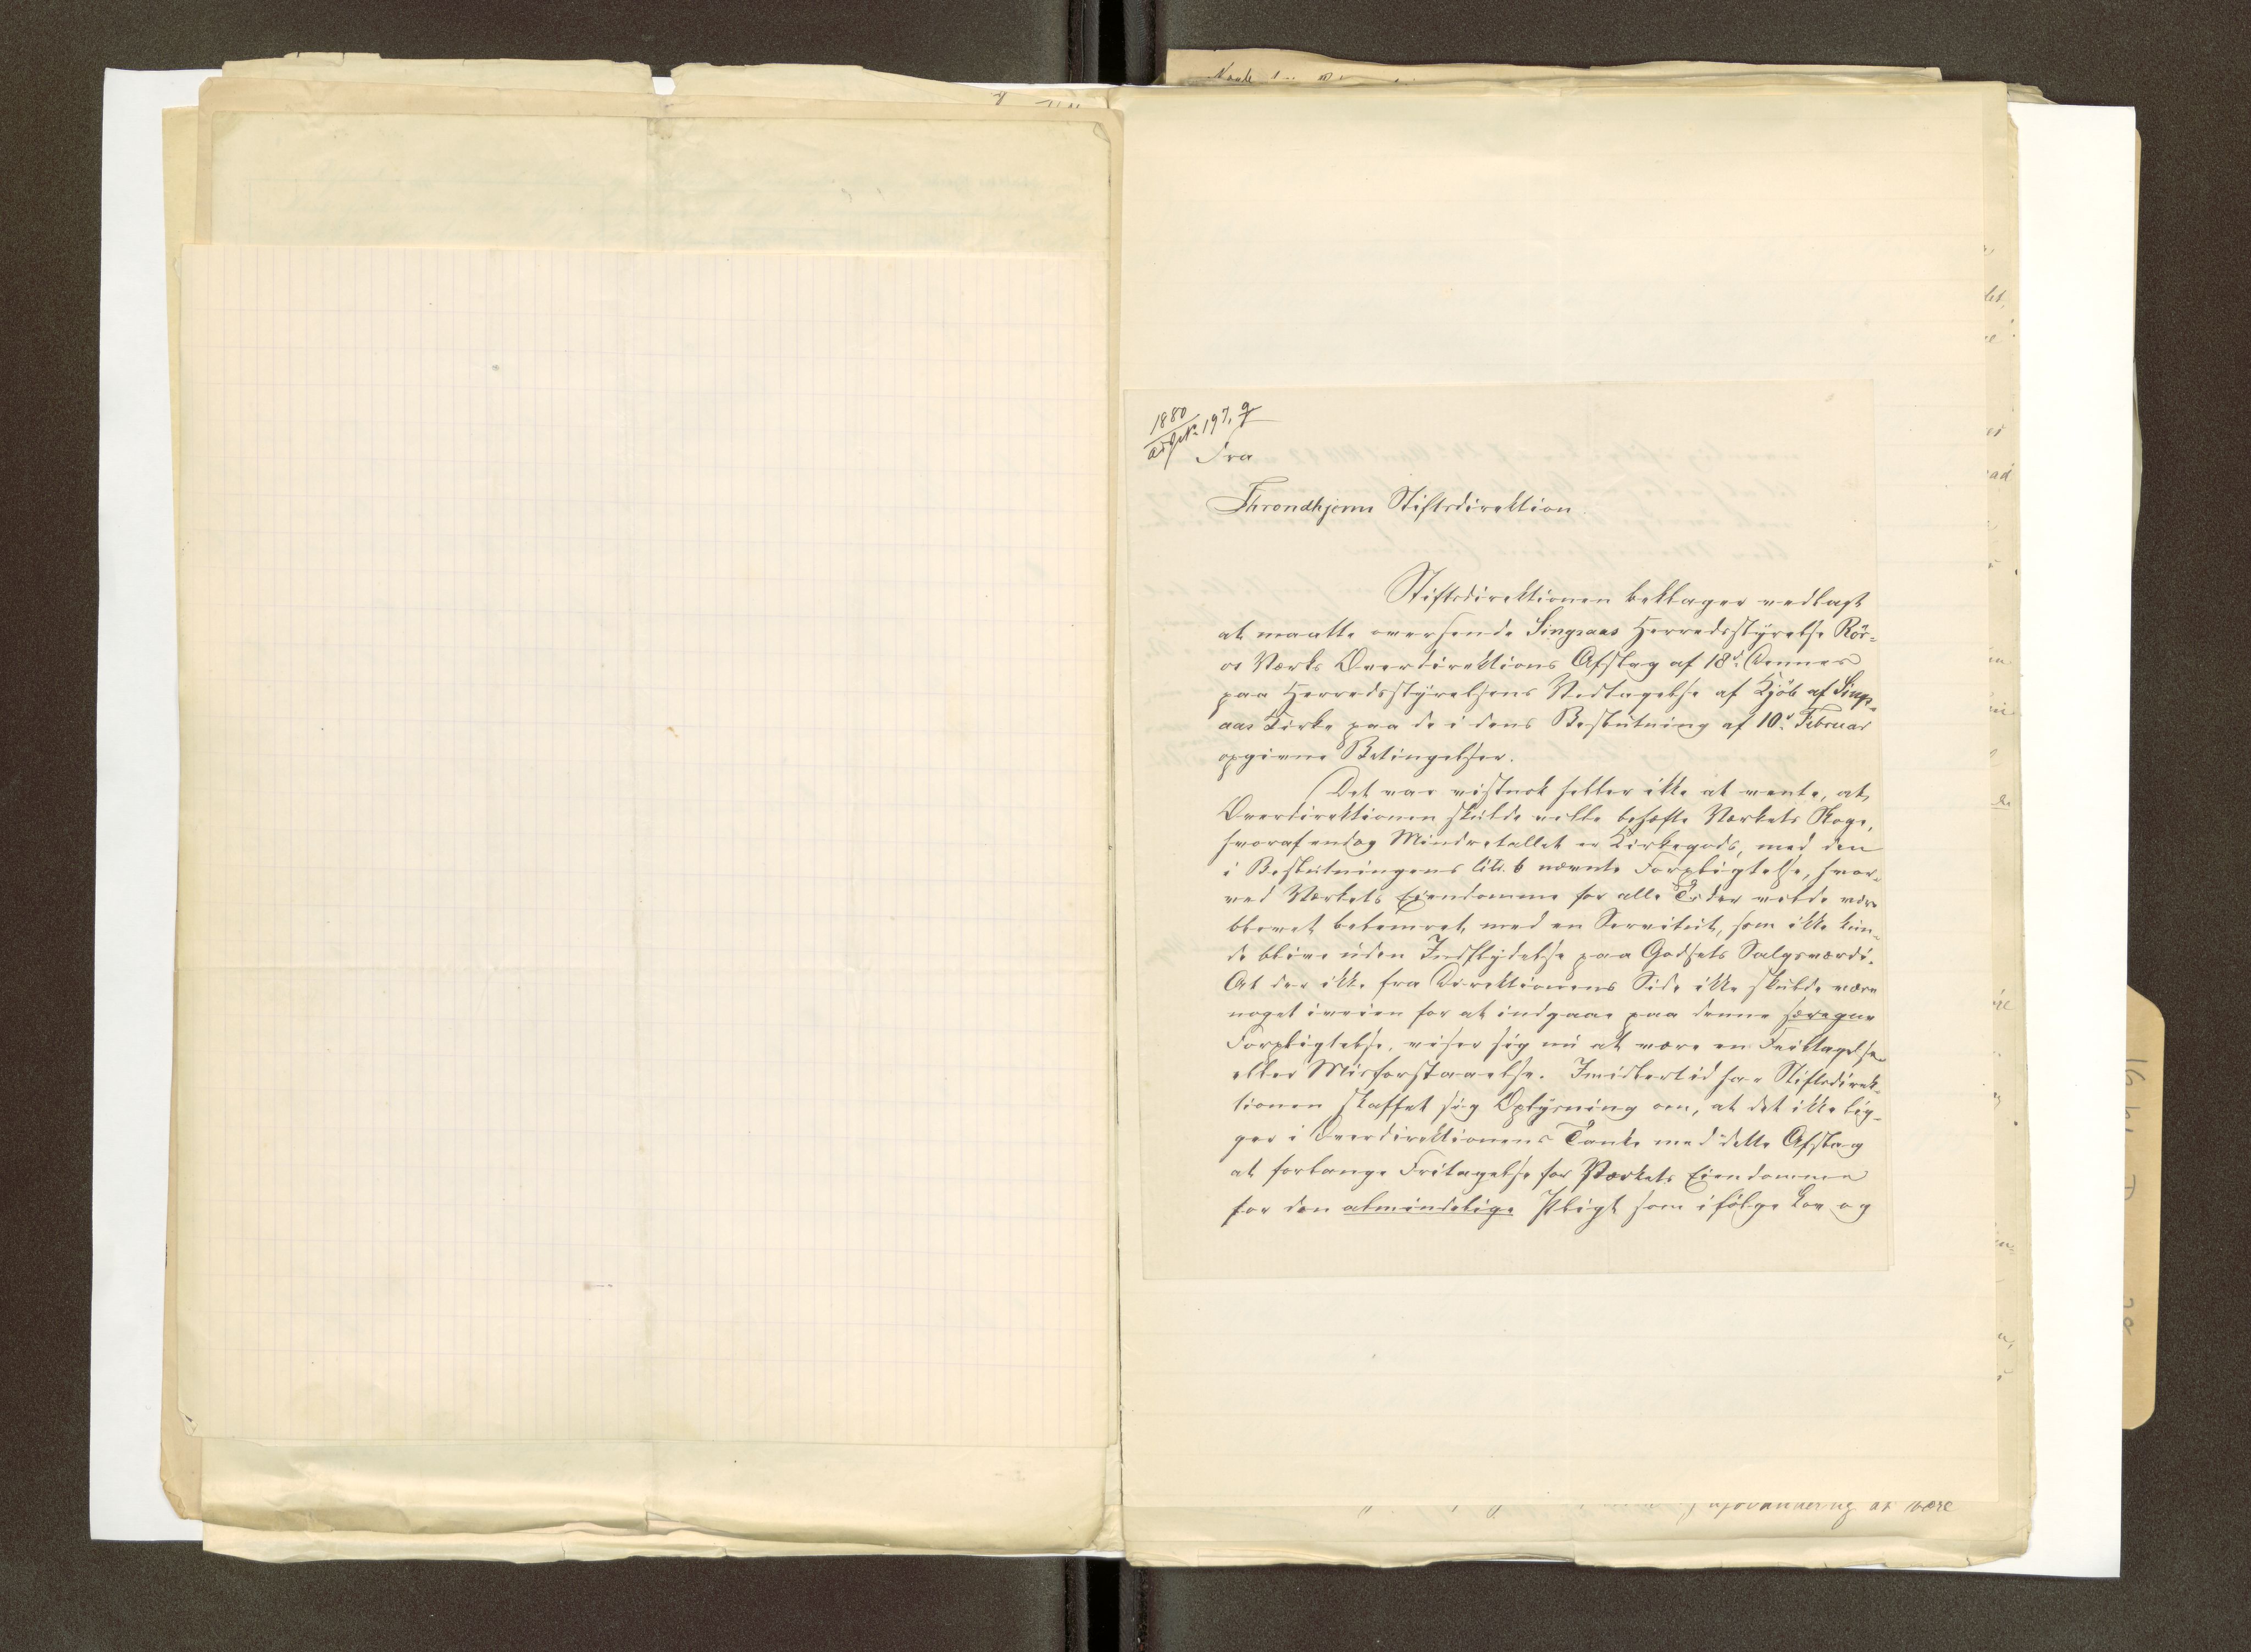 1880
adJN. 197, g
Fra
Throndhjems Stiftsdirektion.
Stiftsdirektionen beklager vedlagt
at maatte oversende Singsaas Herredsstyrelse Rör-
os Værks Overdirektions Afslag af 18d. Dennes
paa Herredsstyrelsens Vedtagelse af Kjöb af Sings-
aas Kirke paa de i dens Beslutning af 10d. Februar
opgivne Betingelser.
Det var vistnok heller ikke at vente, at
Overdirektionen skulde ville behefte Værkets Skoge,
hvoraf endog Mindretallet er Kirkegods, med den
i Beslutningens litr. b nævnte Forpligtelse, hvor-
ved Værkets Eiendomme for alle Tider vilde være
blevet bebyrdet med en Servitut, som ikke kun-
de blive uden Indflydelse paa Godsets Salgsværdi.
At der ikke fra Direktionens Side ikke skulde være
noget iveien for at indgaae paa denne særegne
Forpligtelse, viser sig nu at være en Feiltagelse
eller Misforstaaelse. Imidlertid har Stiftsdirek-
tionen skaffet sig Oplysning om, at det ikke lig-
ger i Overdirektionens Tanke med dette Afslag
at forlange Fritagelse for Værkets Eiendomme
for den almindelige Pligt som ifölge Lov og
at være